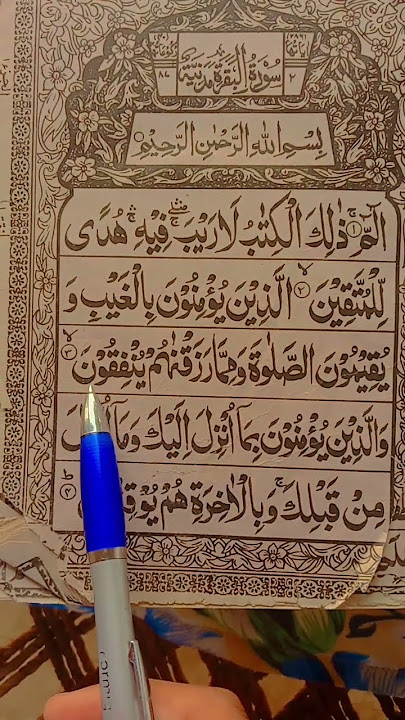 سُوْرَةُ الْبَقَرَةِ مَدَنِيَّةٌ
بِسْمِ اللّٰهِ الرَّحْمٰنِ الرَّحِيْمِ
الٓمّٓ ۚ﴿١﴾ ذٰلِكَ الْكِتٰبُ لَا رَيْبَ ۛ فِيْهِ ۛ هُدًى
لِّلْمُتَّقِيْنَ ۙ﴿٢﴾ الَّذِيْنَ يُؤْمِنُوْنَ بِالْغَيْبِ وَ
يُقِيْمُوْنَ الصَّلٰوةَ وَمِمَّا رَزَقْنٰهُمْ يُنْفِقُوْنَ ۙ﴿٣﴾
وَالَّذِيْنَ يُؤْمِنُوْنَ بِمَآ اُنْزِلَ اِلَيْكَ وَمَآ
مِنْ قَبْلِكَ ۚ وَبِالْاٰخِرَةِ هُمْ